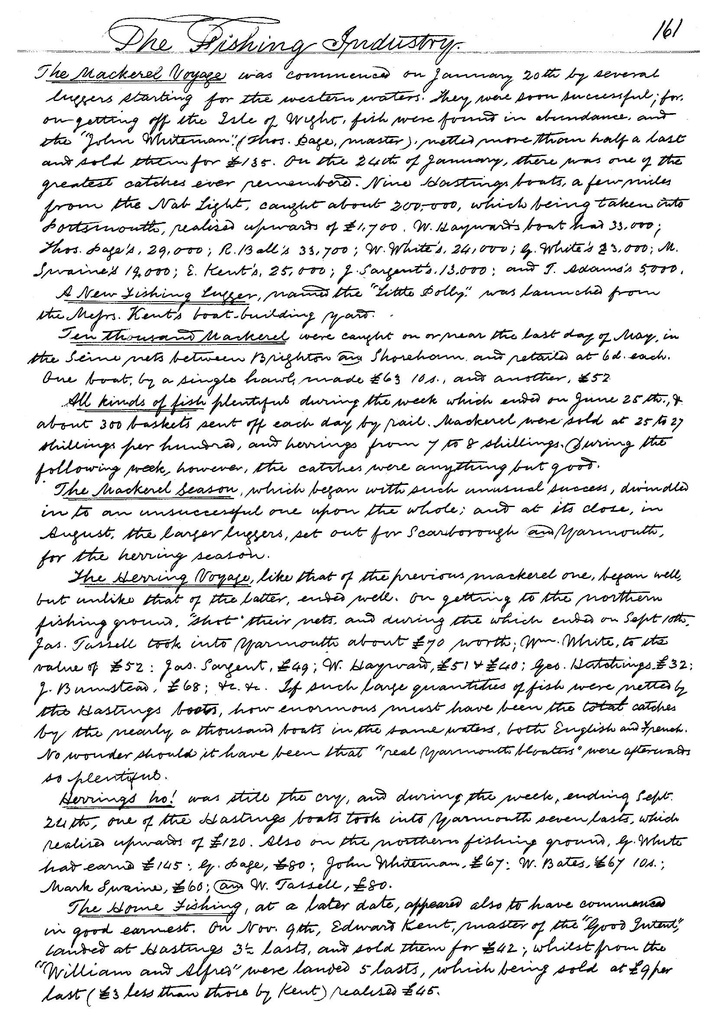 The Fishing Industry. 161
The Mackerel Voyage was commenced on January 20th by several
luggers starting for the western waters. They were soon successful; for,
on getting off the Isle of Wight, fish were found in abundance, and
the "John Whiteman" (Thos. Page, master), netted more than half a last
and sold them for £135. On the 24th of January, there was one of the
greatest catches ever remembered. Nine Hastings boats, a few miles
from the Nab Light, caught about 200,000, which being taken into
Portsmouth, realised upwards of £1,700. W. Hayward's boat had 33,000;
Thos. Page's, 29,000; R. Ball's 33,700; W. White's, 24,000; G. White's 23,000; M.
Swaine's 19,000; E. Kent's, 25,000; J. Sargent's, 13,000; and T. Adams's 5,000.
A New Fishing Lugger, named the "Little Polly" was launched from
the Messrs. Kent's boat-building yard.
Ten thousand Mackerel were caught on or near the last day of May, in
the Seine nets between Brighton and Shoreham and retailed at 6d. each.
One boat, by a single hawl, made £63 10s., and another, £52
All kinds of fish plentiful during the week which ended on June 25th., &
about 300 baskets sent off each day by rail. Mackerel were sold at 25 to 27
shillings per hundred, and herrings from 7 to 8 shillings. During the
following week, however, the catches were anything but good.
The Mackerel Season, which began with such unusual success, dwindled
in to an unsuccessful one upon the whole; and at its close, in
August, the larger luggers, set out for Scarborough and Yarmouth,
for the herring season.
The Herring Voyage, like that of the previous mackerel one, began well,
but unlike that of the latter, ended well. On getting to the northern
fishing ground, 'shot' their nets, and during the which ended on Sept 10th,
Jas. Tassell took into Yarmouth about £70 worth; Wm. White, to the
value of £52: Jas. Sargent, £49; W. Hayward, £51 & £40; Geo. Hutchings £32;
J. Bumstead, £68; &c. &c. If such large quantities of fish were netted by
the Hastings boats, how enormous must have been the total catches
by the nearly a thousand boats in the same waters, both English and French.
No wonder should it have been that "real Yarmouth bloaters" were afterwards
so plentiful.
Herrings ho! was still the cry, and during the week, ending Sept.
24th, one of the Hastings boats took into Yarmouth seven lasts, which
realised upwards of £120. Also on the northern fishing ground, G. White
had earned £145; G. Page, £80; John Whiteman, £67: W. Bates, £67 10s.;
Mark Swaine, £60; and W. Tassell, £80.
The Home Fishing, at a later date, appeared also to have commenced
in good earnest. On Nov. 9th, Edward Kent, master of the "Good Intent",
landed at Hastings 3½ lasts, and sold them for £42; whilst from the
"William and Alfred" were landed 5 lasts, which being sold at £9 per
last (£3 less than those by Kent) realised £45.